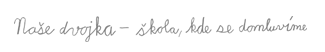 Naše dvojka – škola, kde se domluvíme